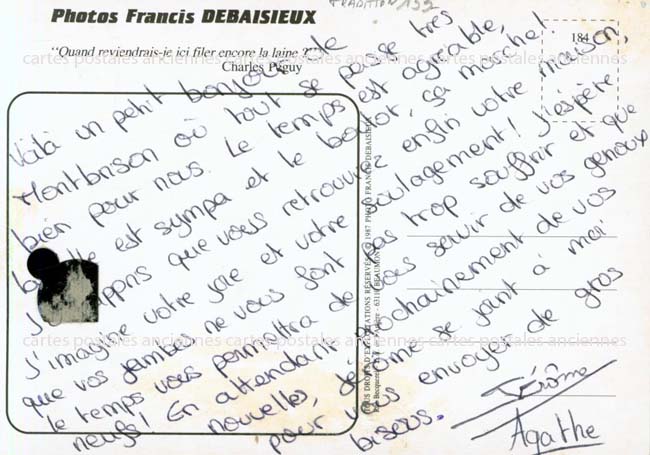 TRADITION 192
Photos Francis DEBAISIEUX
184
"Quand reviendrais-je ici filer encore la laine ?"
Charles Péguy
cartes postales anciennes cartes postales anciennes cartes postales anciennes
Voilà un petit bonjour de
Montbrison où tout se passe très
bien pour nous. Le temps est agréable,
la est sympa et le boulot, ça marche!
J' appris que vous retrouvez enfin votre maison,
J'imagine votre joie et votre soulagement! J'espère
que vos jambes ne vous font pas trop souffrir et que
le temps vous permettra de vous servir de vos genoux
neufs! En attendant prochainement de vos
nouvelles, Jérôme se joint à moi
pour vous envoyer de gros
bisous.
Jérôme
Agathe
TOUS DROITS D'EXPLOITATIONS RÉSERVÉS © 1987 PHOTO FRANCIS DEBAISIEUX
63110 BEAUMONT
cartes postales anciennes cartes postales anciennes cartes postales anciennes